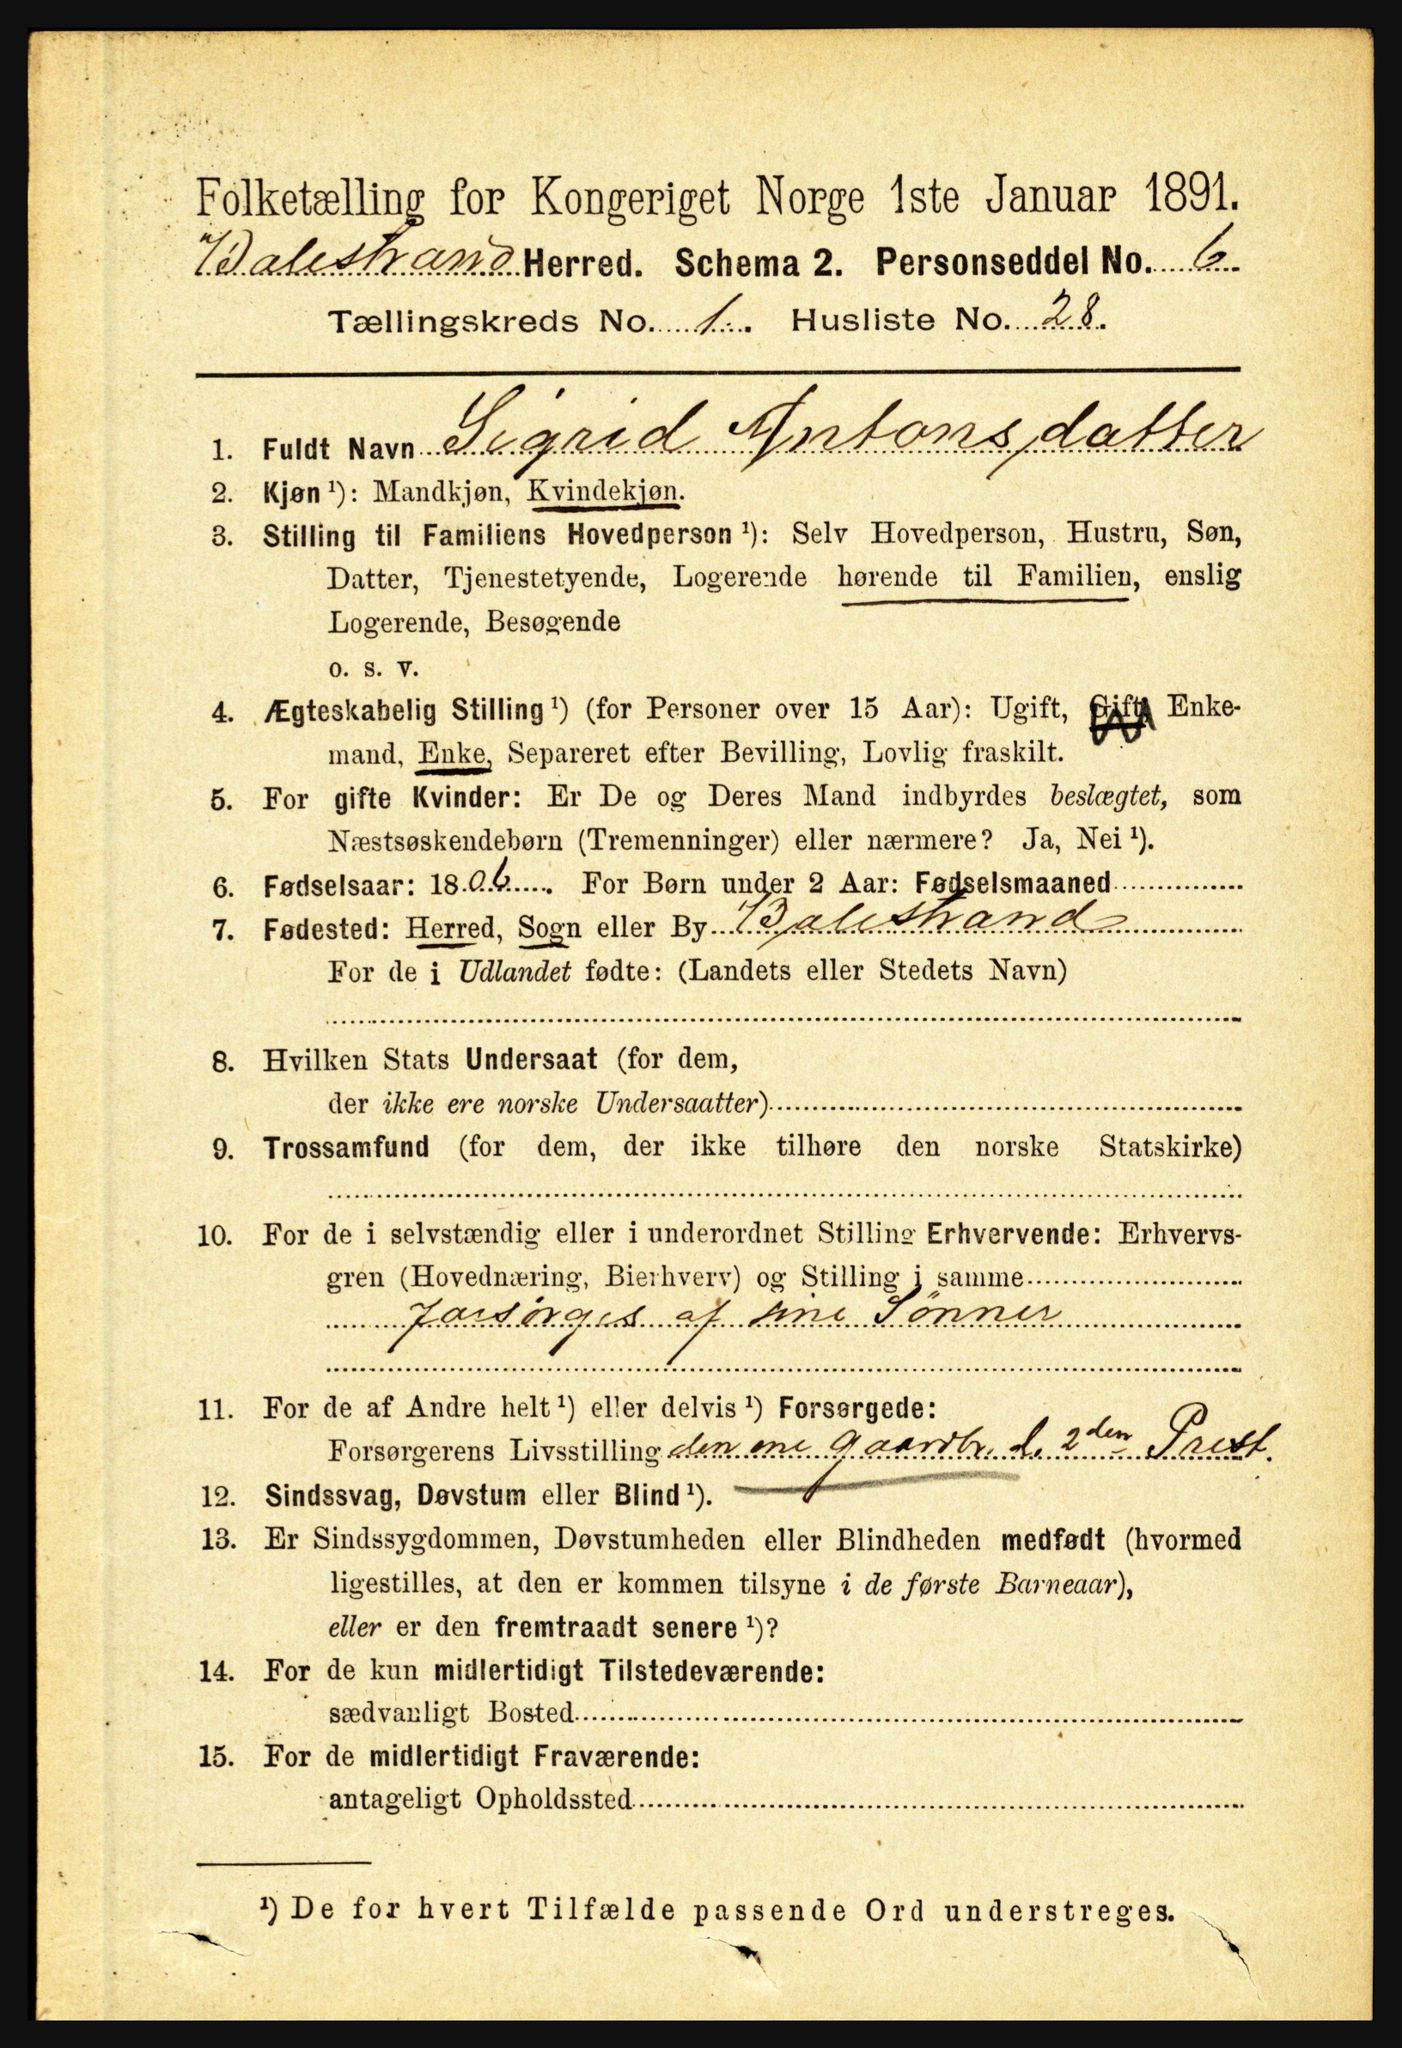 Folketælling for Kongeriget Norge 1ste Januar 1891.
Balestrand Herred. Schema 2. Personseddel No. 6.
Tællingskreds No. 1. Husliste No. 28.
1. Fuldt Navn Sigrid Antonsdatter
2. Kjøn ¹): Mandkjøn, Kvindekjøn.
3. Stilling til Familiens Hovedperson ¹): Selv Hovedperson, Hustru, Søn,
Datter, Tjenestetyende, Logerende hørende til Familien, enslig
Logerende, Besøgende
o. s. v.
4. Ægteskabelig Stilling ¹) (for Personer over 15 Aar): Ugift, Gift, Enke-
mand, Enke, Separeret efter Bevilling, Lovlig fraskilt.
5. For gifte Kvinder: Er De og Deres Mand indbyrdes beslægtet, som
Næstsøskendebørn (Tremenninger) eller nærmere? Ja, Nei ¹).
6. Fødselsaar: 1806. For Børn under 2 Aar: Fødselsmaaned
7. Fødested: Herred, Sogn eller By Balestrand
For de i Udlandet fødte: (Landets eller Stedets Navn)
8. Hvilken Stats Undersaat (for dem,
der ikke ere norske Undersaatter)
9. Trossamfund (for dem, der ikke tilhøre den norske Statskirke)
10. For de i selvstændig eller i underordnet Stilling Erhvervende: Erhvervs-
gren (Hovednæring, Bierhverv) og Stilling i samme
forsørges af sine Sønner
11. For de af Andre helt ¹) eller delvis ¹) Forsørgede:
Forsørgerens Livsstilling den ene gaardbr. d. 2den Prest.
12. Sindssvag, Døvstum eller Blind ¹).
13. Er Sindssygdommen, Døvstumheden eller Blindheden medfødt (hvormed
ligestilles, at den er kommen tilsyne i de første Barneaar),
eller er den fremtraadt senere ¹)?
14. For de kun midlertidigt Tilstedeværende:
sædvanligt Bosted
15. For de midlertidigt Fraværende:
antageligt Opholdssted
¹) De for hvert Tilfælde passende Ord understreges.